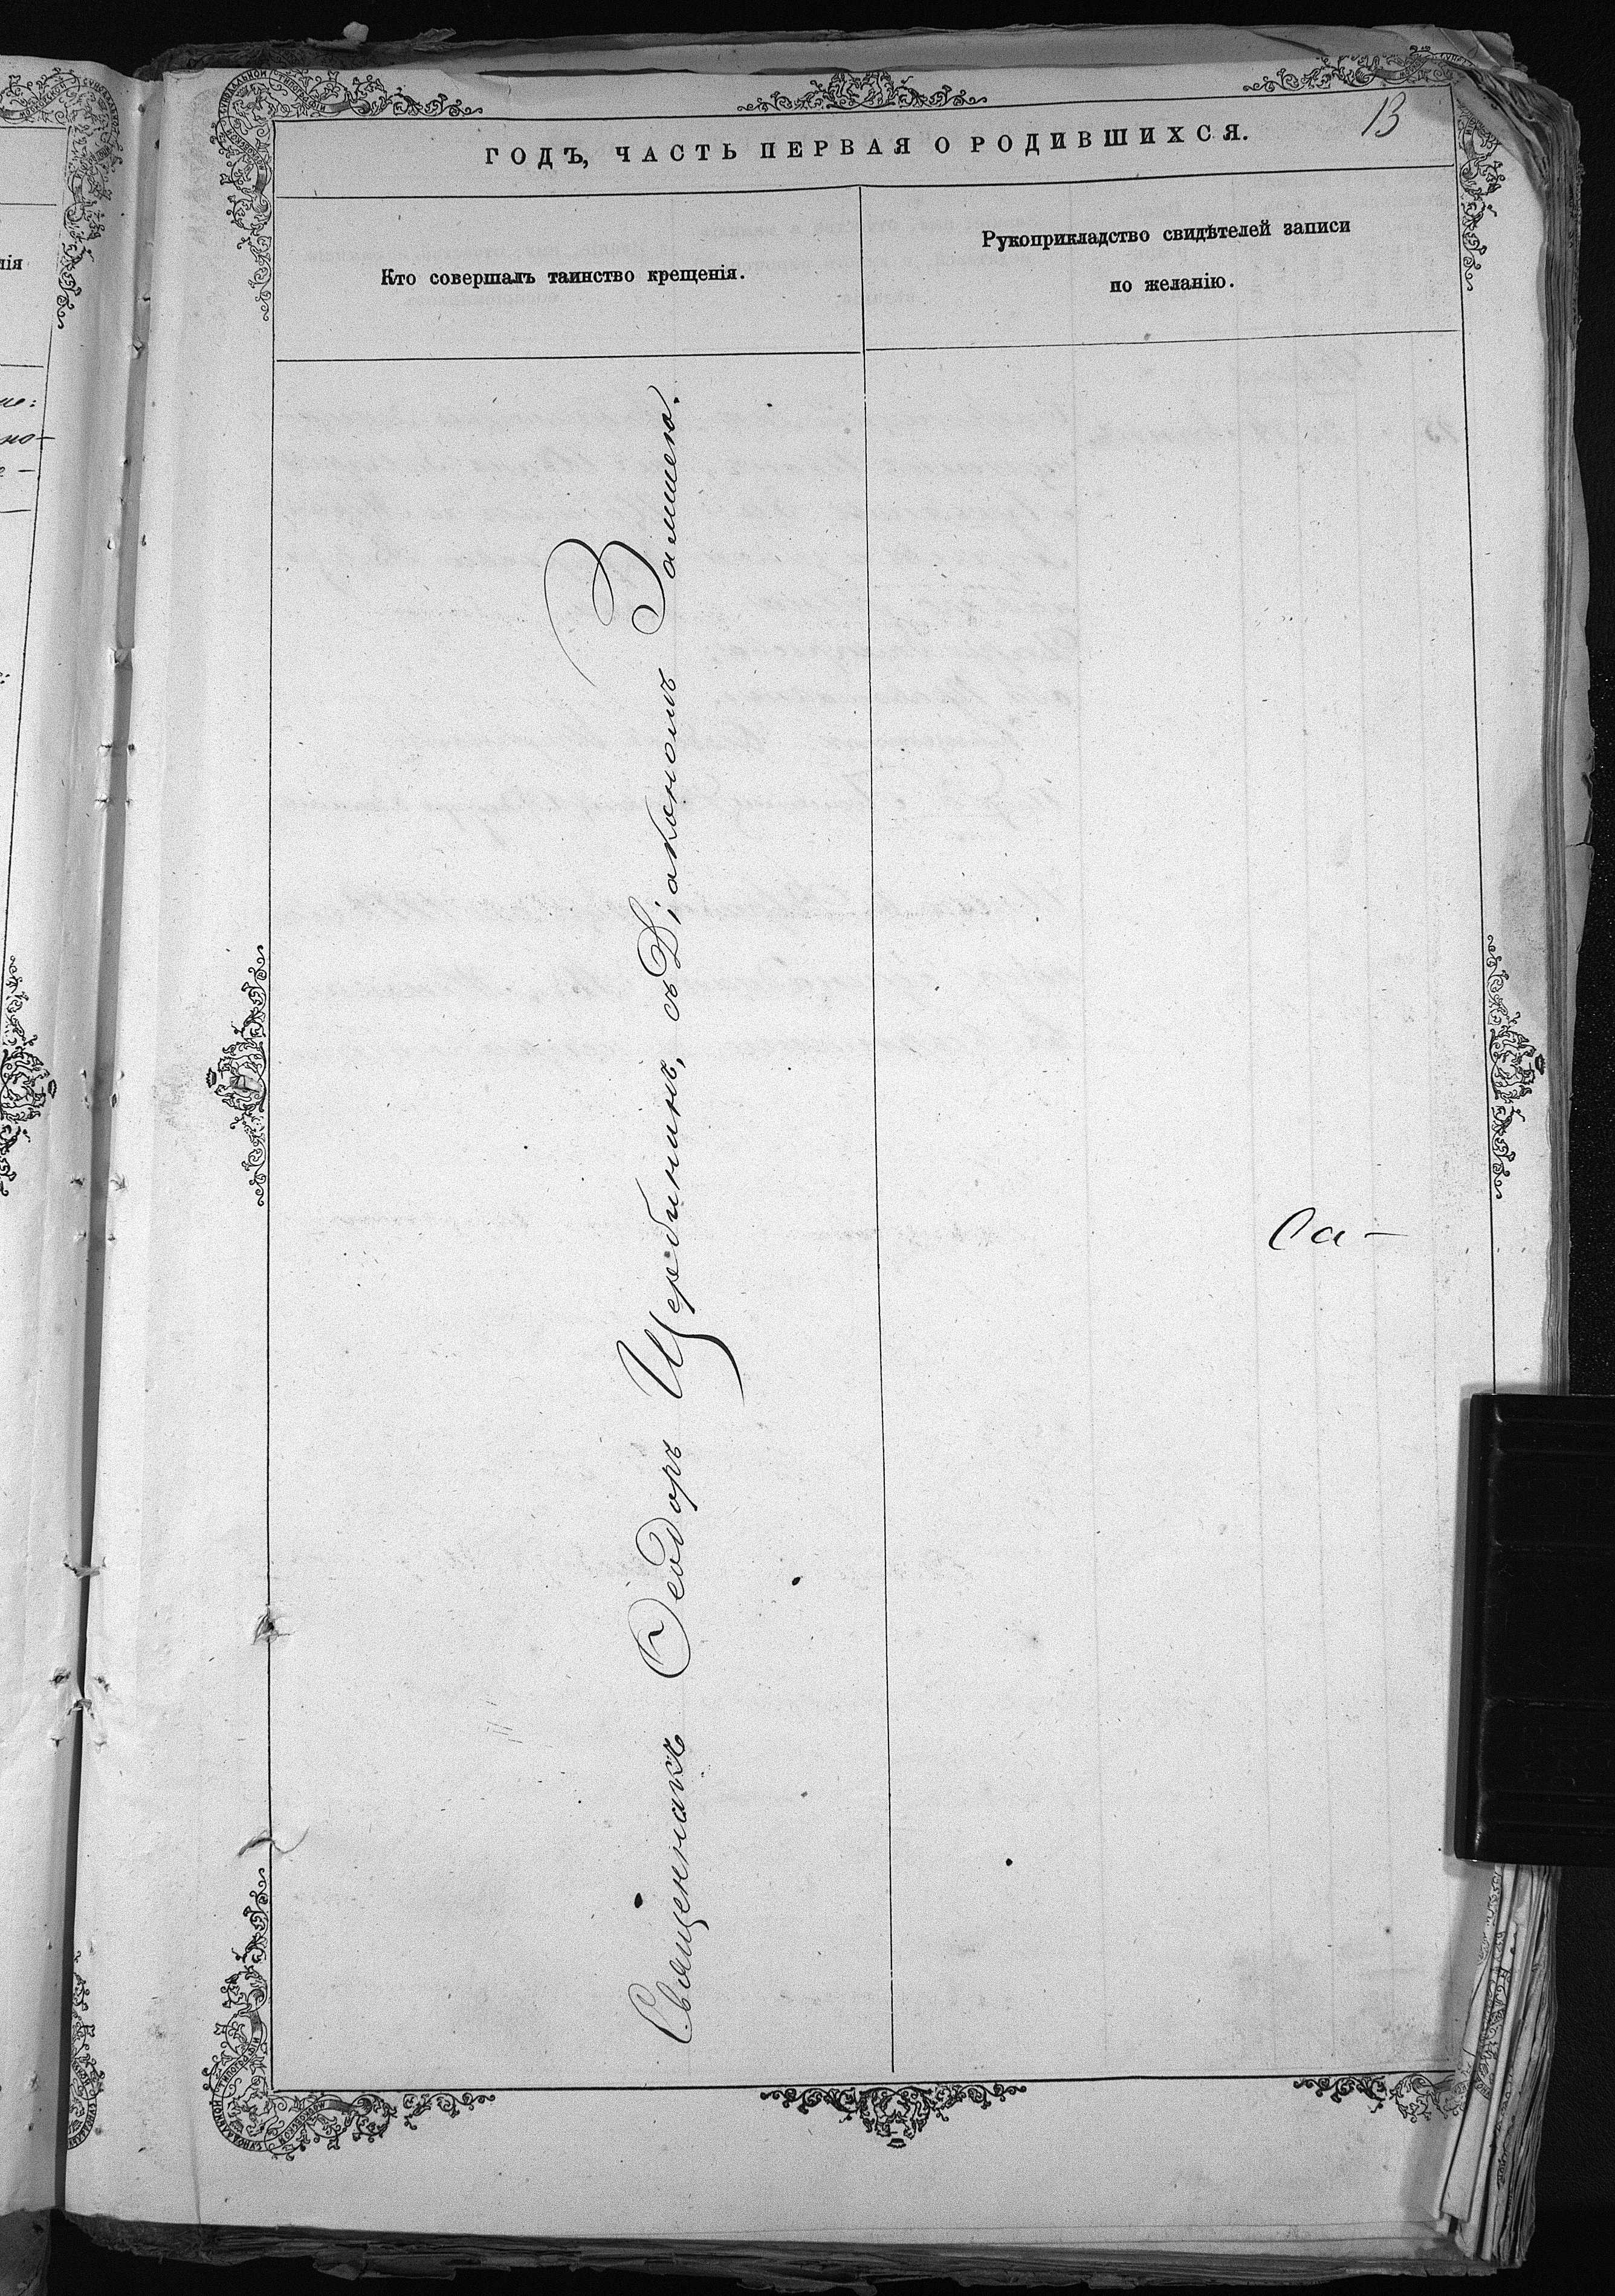 13
ГОДЪ, ЧАСТЬ ПЕРВАЯ О РОДИВШИХСЯ.
Кто совершалъ таинство крещенія.
Рукоприкладство свидѣтелей записи
по желанію.
Священникъ Ѳеодоръ Щербининъ, съ Діакономъ
Са-